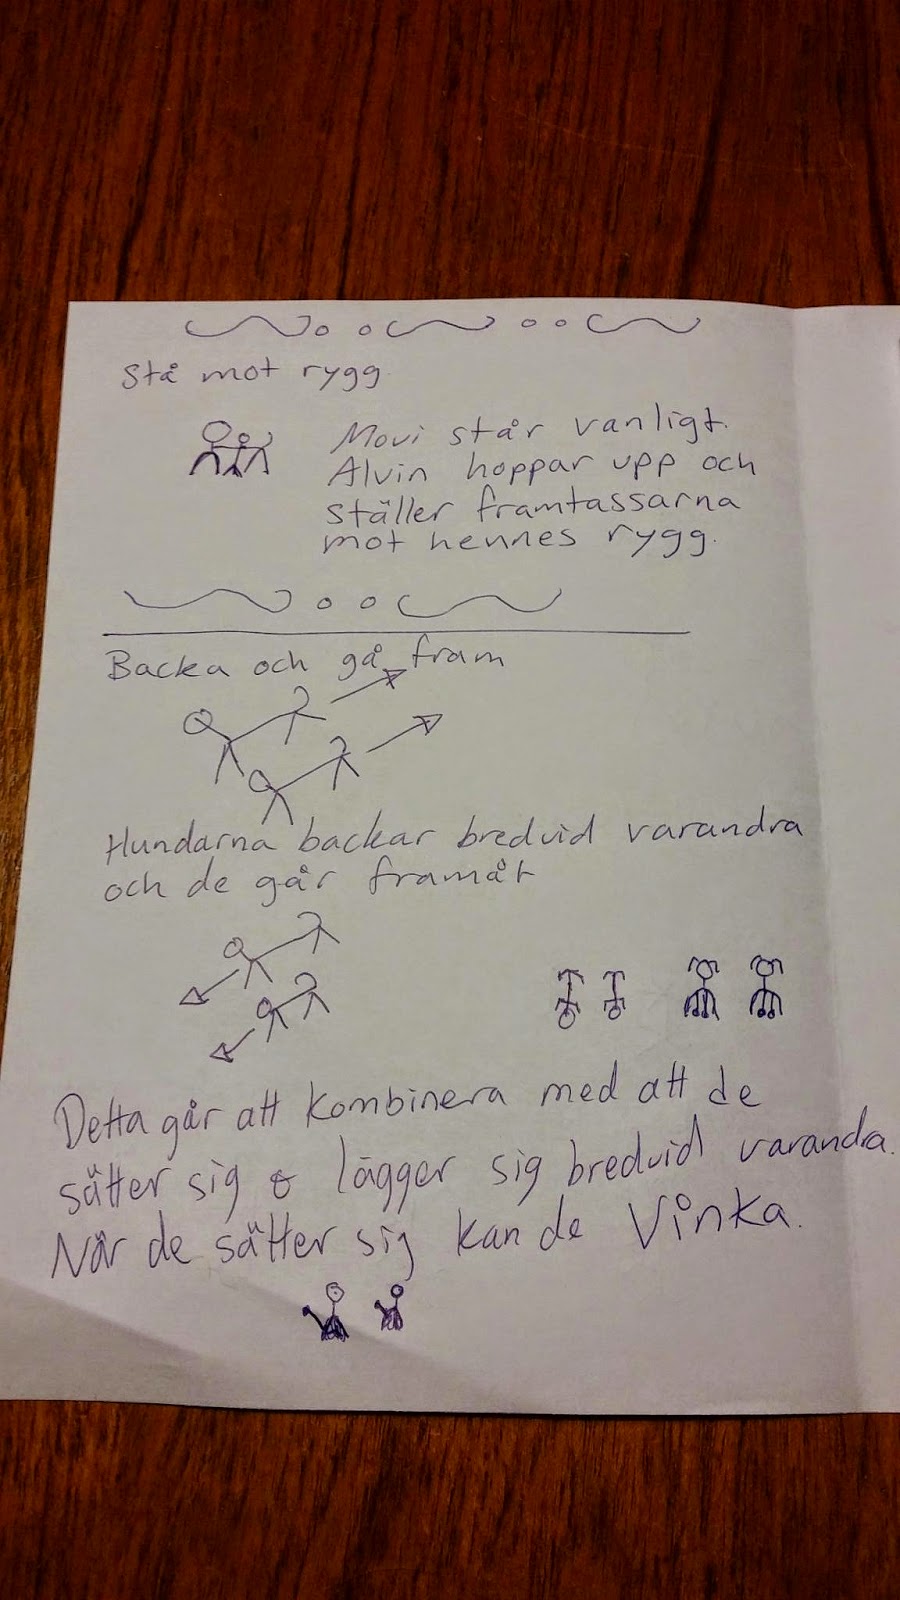 Stå mot rygg
Movi står vanligt.
Alvin hoppar upp och
ställer framtassarna
mot hennes rygg.
Backa och gå fram
Hundarna backar bredvid varandra
och de går framåt
Detta går att kombinera med att de
sätter sig o lägger sig bredvid varandra.
När de sätter sig kan de Vinka.